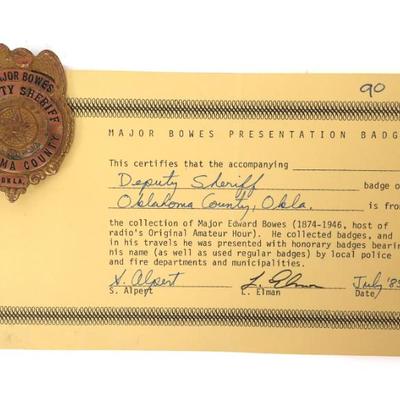 MAJOR BOWES
DEPUTY SHERIFF
OKLA.
COUNTY
90
MAJOR BOWES PRESENTATION BADG
This certifies that the accompanying
Deputy Sheriff badge o
Oklahoma County, Okla. is fro
the collection of Major Edward Bowes (1874-1946, host of
radio's Original Amateur Hour). He collected badges, and
in his travels he was presented with honorary badges bearin
his name (as well as used regular badges) by local police
and fire departments and municipalities.
S. Alpert L. Elman July '85
S. Alpert L. Elman Date